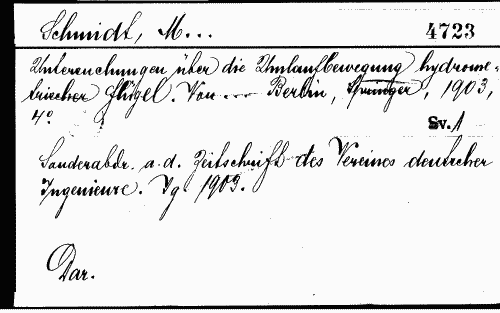 Schmidt, M... 4723
Untersuchungen über die Umlaufbewegung hydrome-
trischer Flügel. Von .... Berlin, Springer, 1903,
4° Sv. 1
Sonderabdr. a. d. Zeitschrift des Vereines deutscher
Ingenieure. Jg. 1903.
Dar.